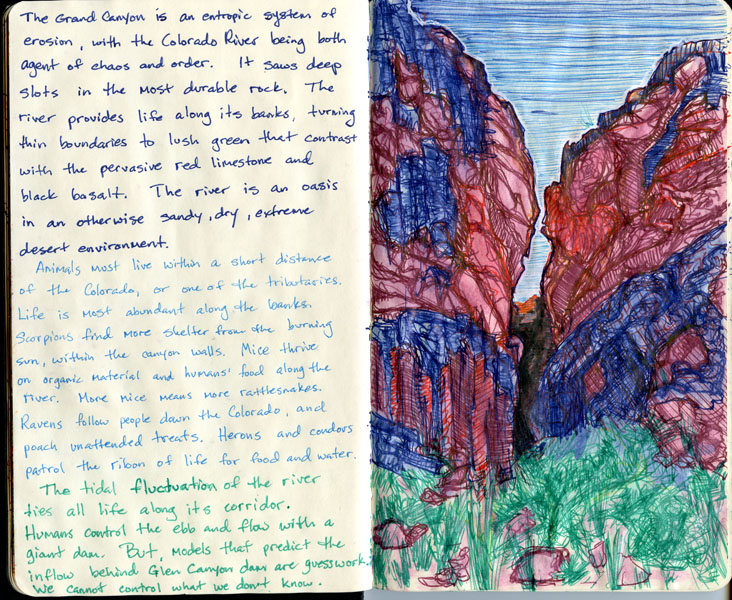 The Grand Canyon is an entropic system of
erosion, with the Colorado River being both
agent of chaos and order. It saws deep
slots in the most durable rock. The
river provides life along its banks, turning
thin boundaries to lush green that contrast
with the pervasive red limestone and
black basalt. The river is an oasis
in an otherwise sandy, dry, extreme
desert environment.
Animals must live within a short distance
of the Colorado, or one of the tributaries.
Life is most abundant along the banks.
Scorpions find more shelter from the burning
sun, within the canyon walls. Mice thrive
on organic material and humans' food along the
river. More mice means more rattlesnakes.
Ravens follow people down the Colorado, and
poach unattended treats. Herons and condors
patrol the ribon of life for food and water.
The tidal fluctuation of the river
ties all life along its corridor.
Humans control the ebb and flow with a
giant dam. But, models that predict the
inflow behind Glen Canyon dam are guesswork.
We cannot control what we don't know.